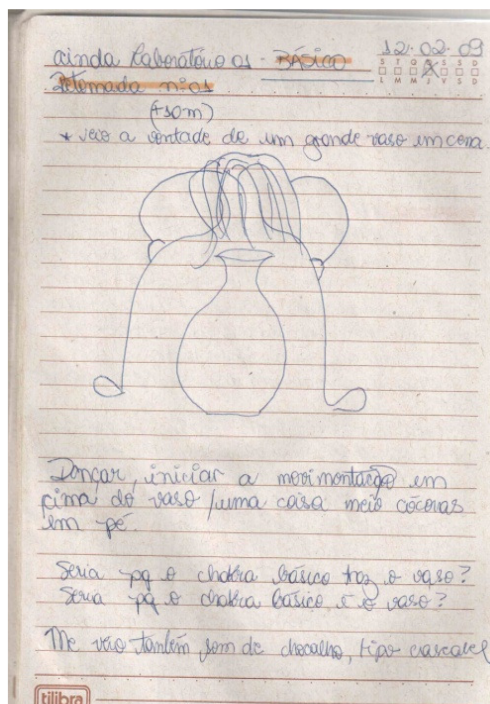 12.02.09
ainda Laboratório 01 - BÁSICO
S T Q Q S S D
L M M J V S D
Retomada nº 01
(+som)
* veio a vontade de um grande vaso em cena.
Dançar, iniciar a movimentação em
cima do vaso / uma coisa meio cócoras
em pé.
Seria pq o chakra básico traz o vaso?
Seria pq o chakra básico é o vaso?
Me veio também som de chocalho, tipo cascavel
tilibra